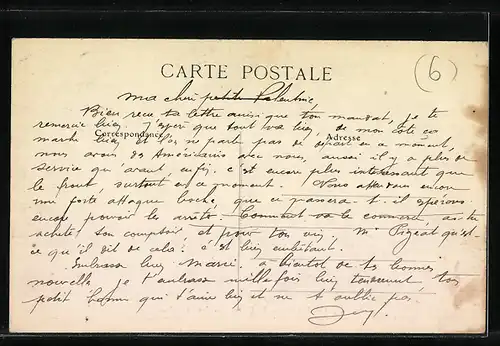 CARTE POSTALE
(6)
ma chère petite Valentine,
Bien reçu ta lettre ainsi que ton mandat, je te
remercie bien. J'espère que tout va bien, de mon côté ça
Correspondance
Adresse
marche bien et l'on ne parle pas de départ en ce moment,
nous avons des Américains avec nous, aussi il y a plus de
service qu'avant, enfin, c'est encore plus intéressant que
le front, surtout en ce moment. Nous attendons encore
une forte attaque boche, que ce passera-t-il espérons
encore pouvoir les arrêter. Comment va le commerce, as-tu
acheté son comptoir et pour ton vin. Mr Pigeat qu'est-
ce qu'il dit de cela? c'est bien embêtant.
Embrasse bien Marcel à bientôt de tes bonnes
nouvelles je t'embrasse mille fois bien tendrement, ton
petit homme qui t'aime bien et ne t'oublie pas.